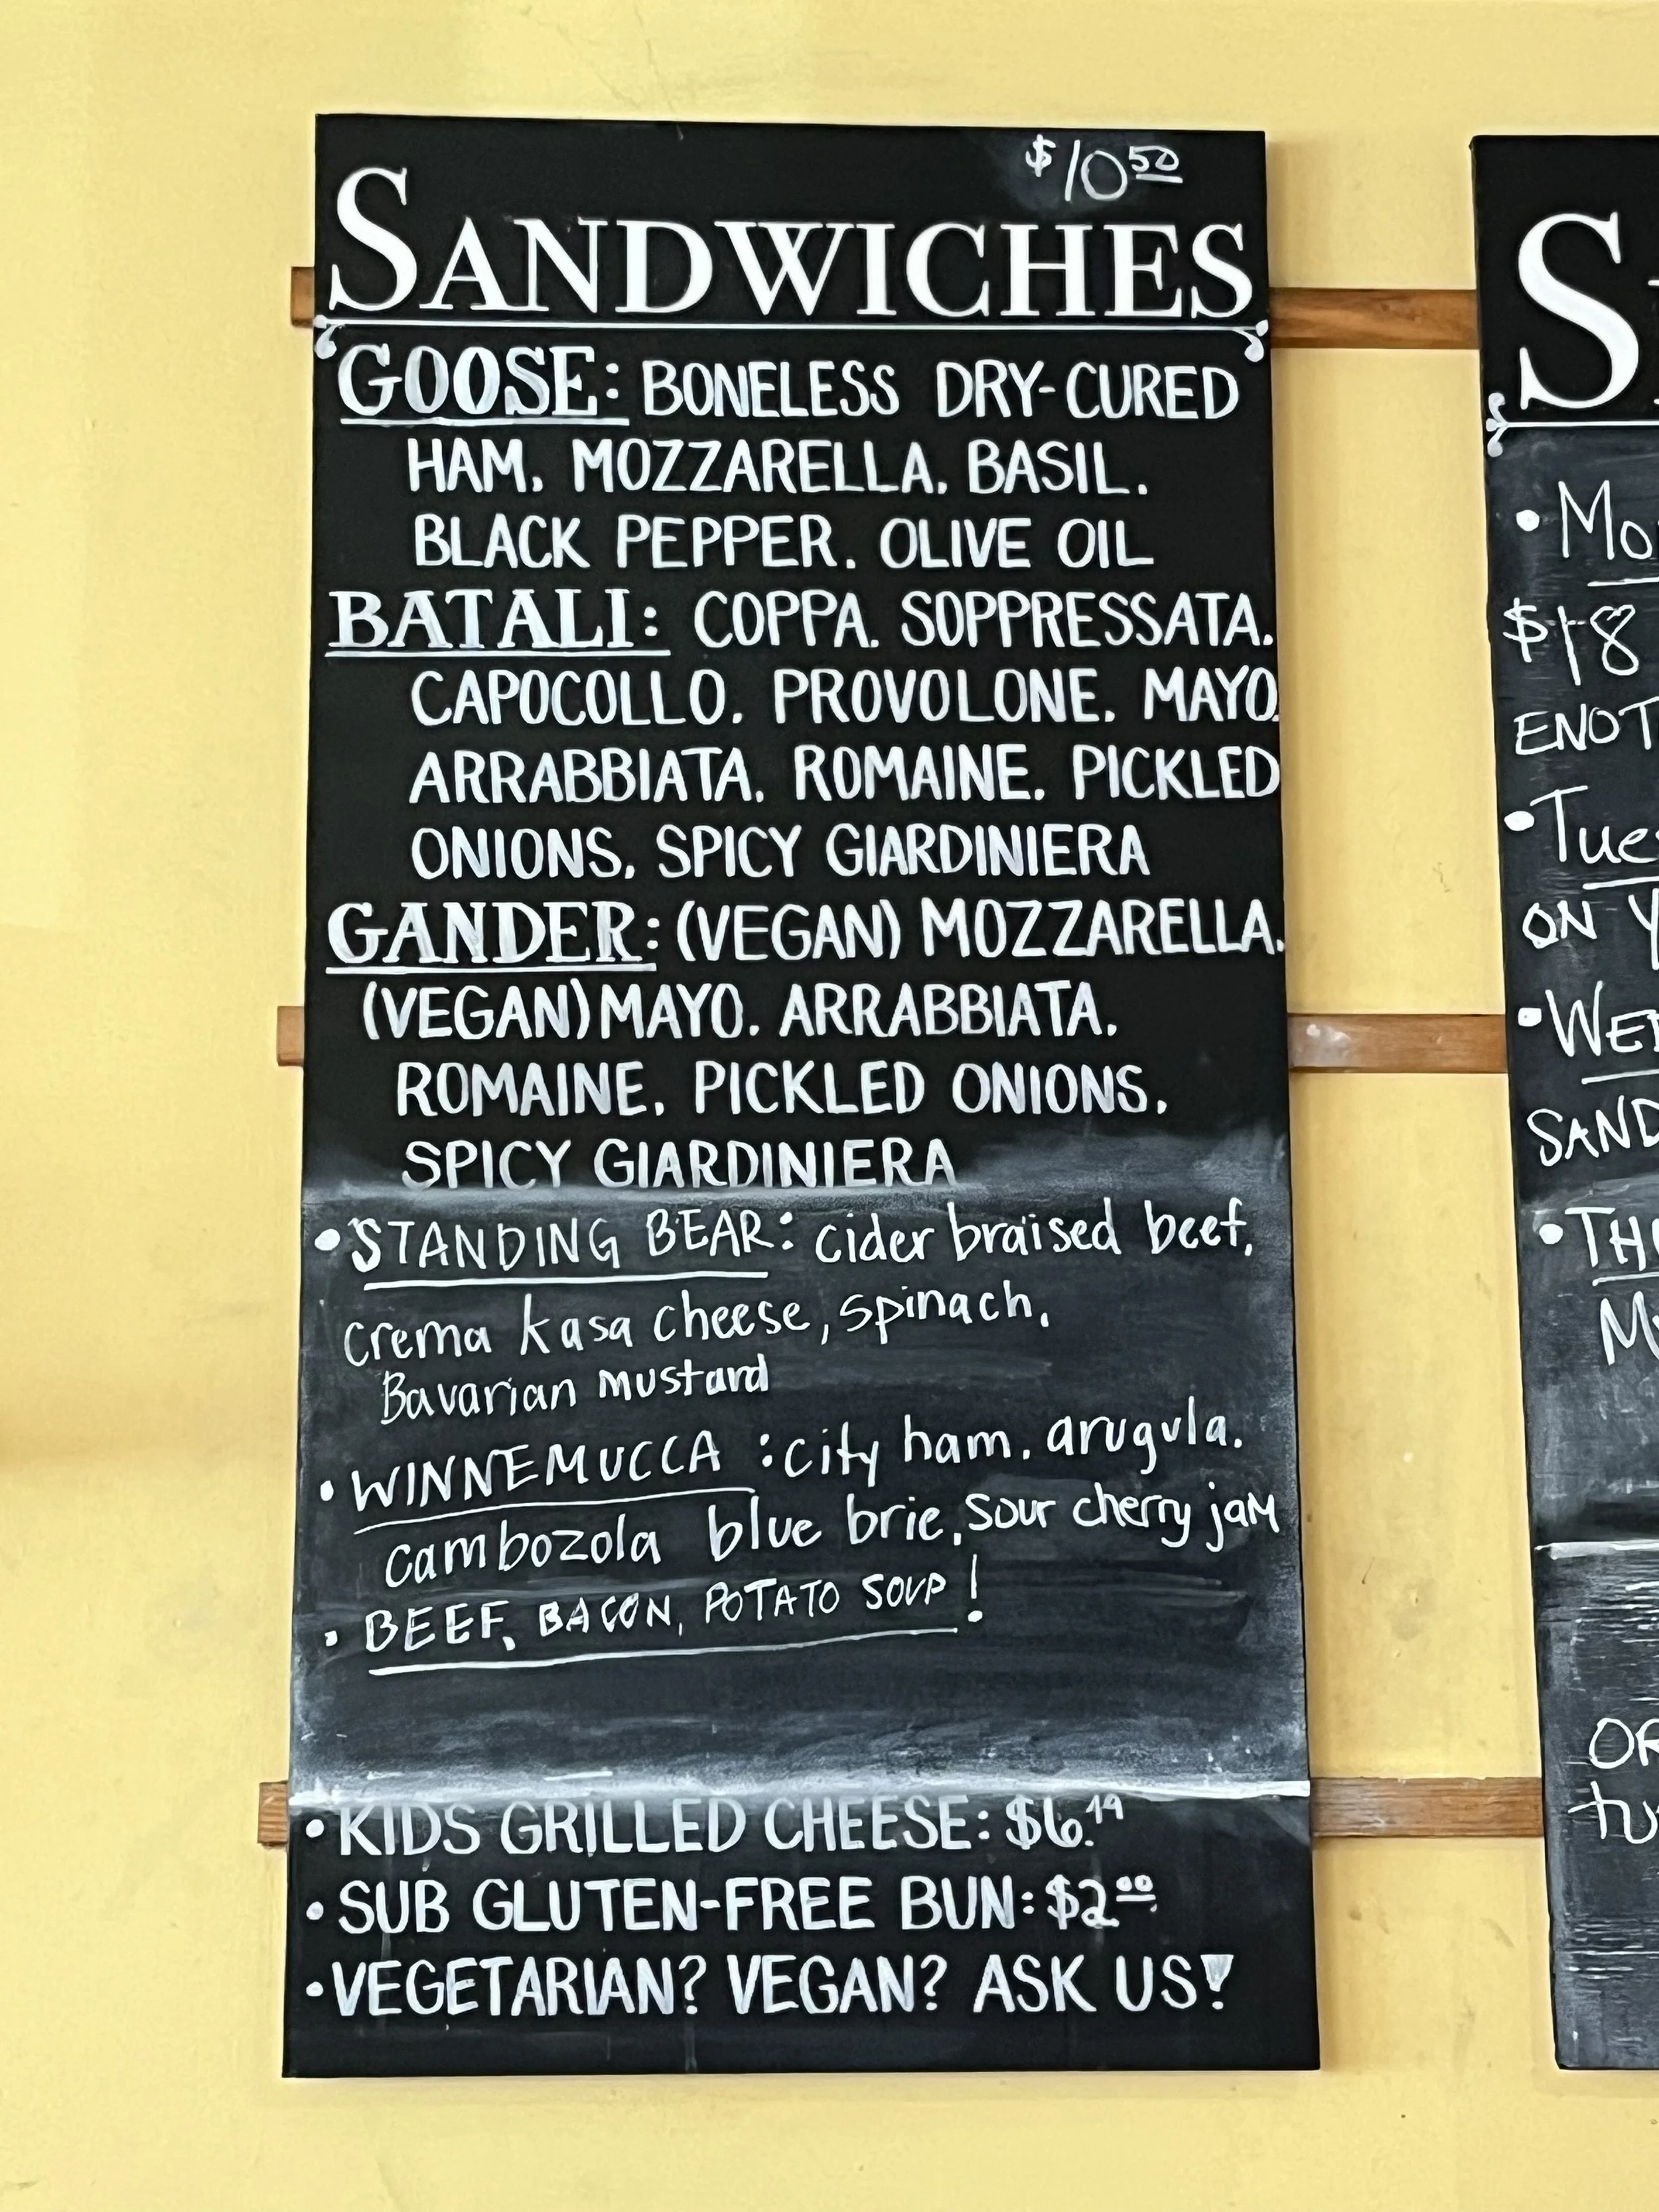 $10 50
SANDWICHES
GOOSE: BONELESS DRY-CURED
HAM. MOZZARELLA. BASIL.
BLACK PEPPER. OLIVE OIL
BATALI: COPPA. SOPPRESSATA.
CAPOCOLLO. PROVOLONE. MAYO.
ARRABBIATA. ROMAINE. PICKLED
ONIONS. SPICY GIARDINIERA
GANDER: (VEGAN) MOZZARELLA.
(VEGAN) MAYO. ARRABBIATA.
ROMAINE. PICKLED ONIONS.
SPICY GIARDINIERA
• STANDING BEAR: cider braised beef,
crema kasa cheese, spinach,
Bavarian mustard
• WINNEMUCCA : city ham, arugula,
cambozola blue brie, sour cherry jam
• BEEF, BACON, POTATO SOUP!
• KIDS GRILLED CHEESE: $6.19
• SUB GLUTEN-FREE BUN: $2 00
• VEGETARIAN? VEGAN? ASK US!
$18
ON